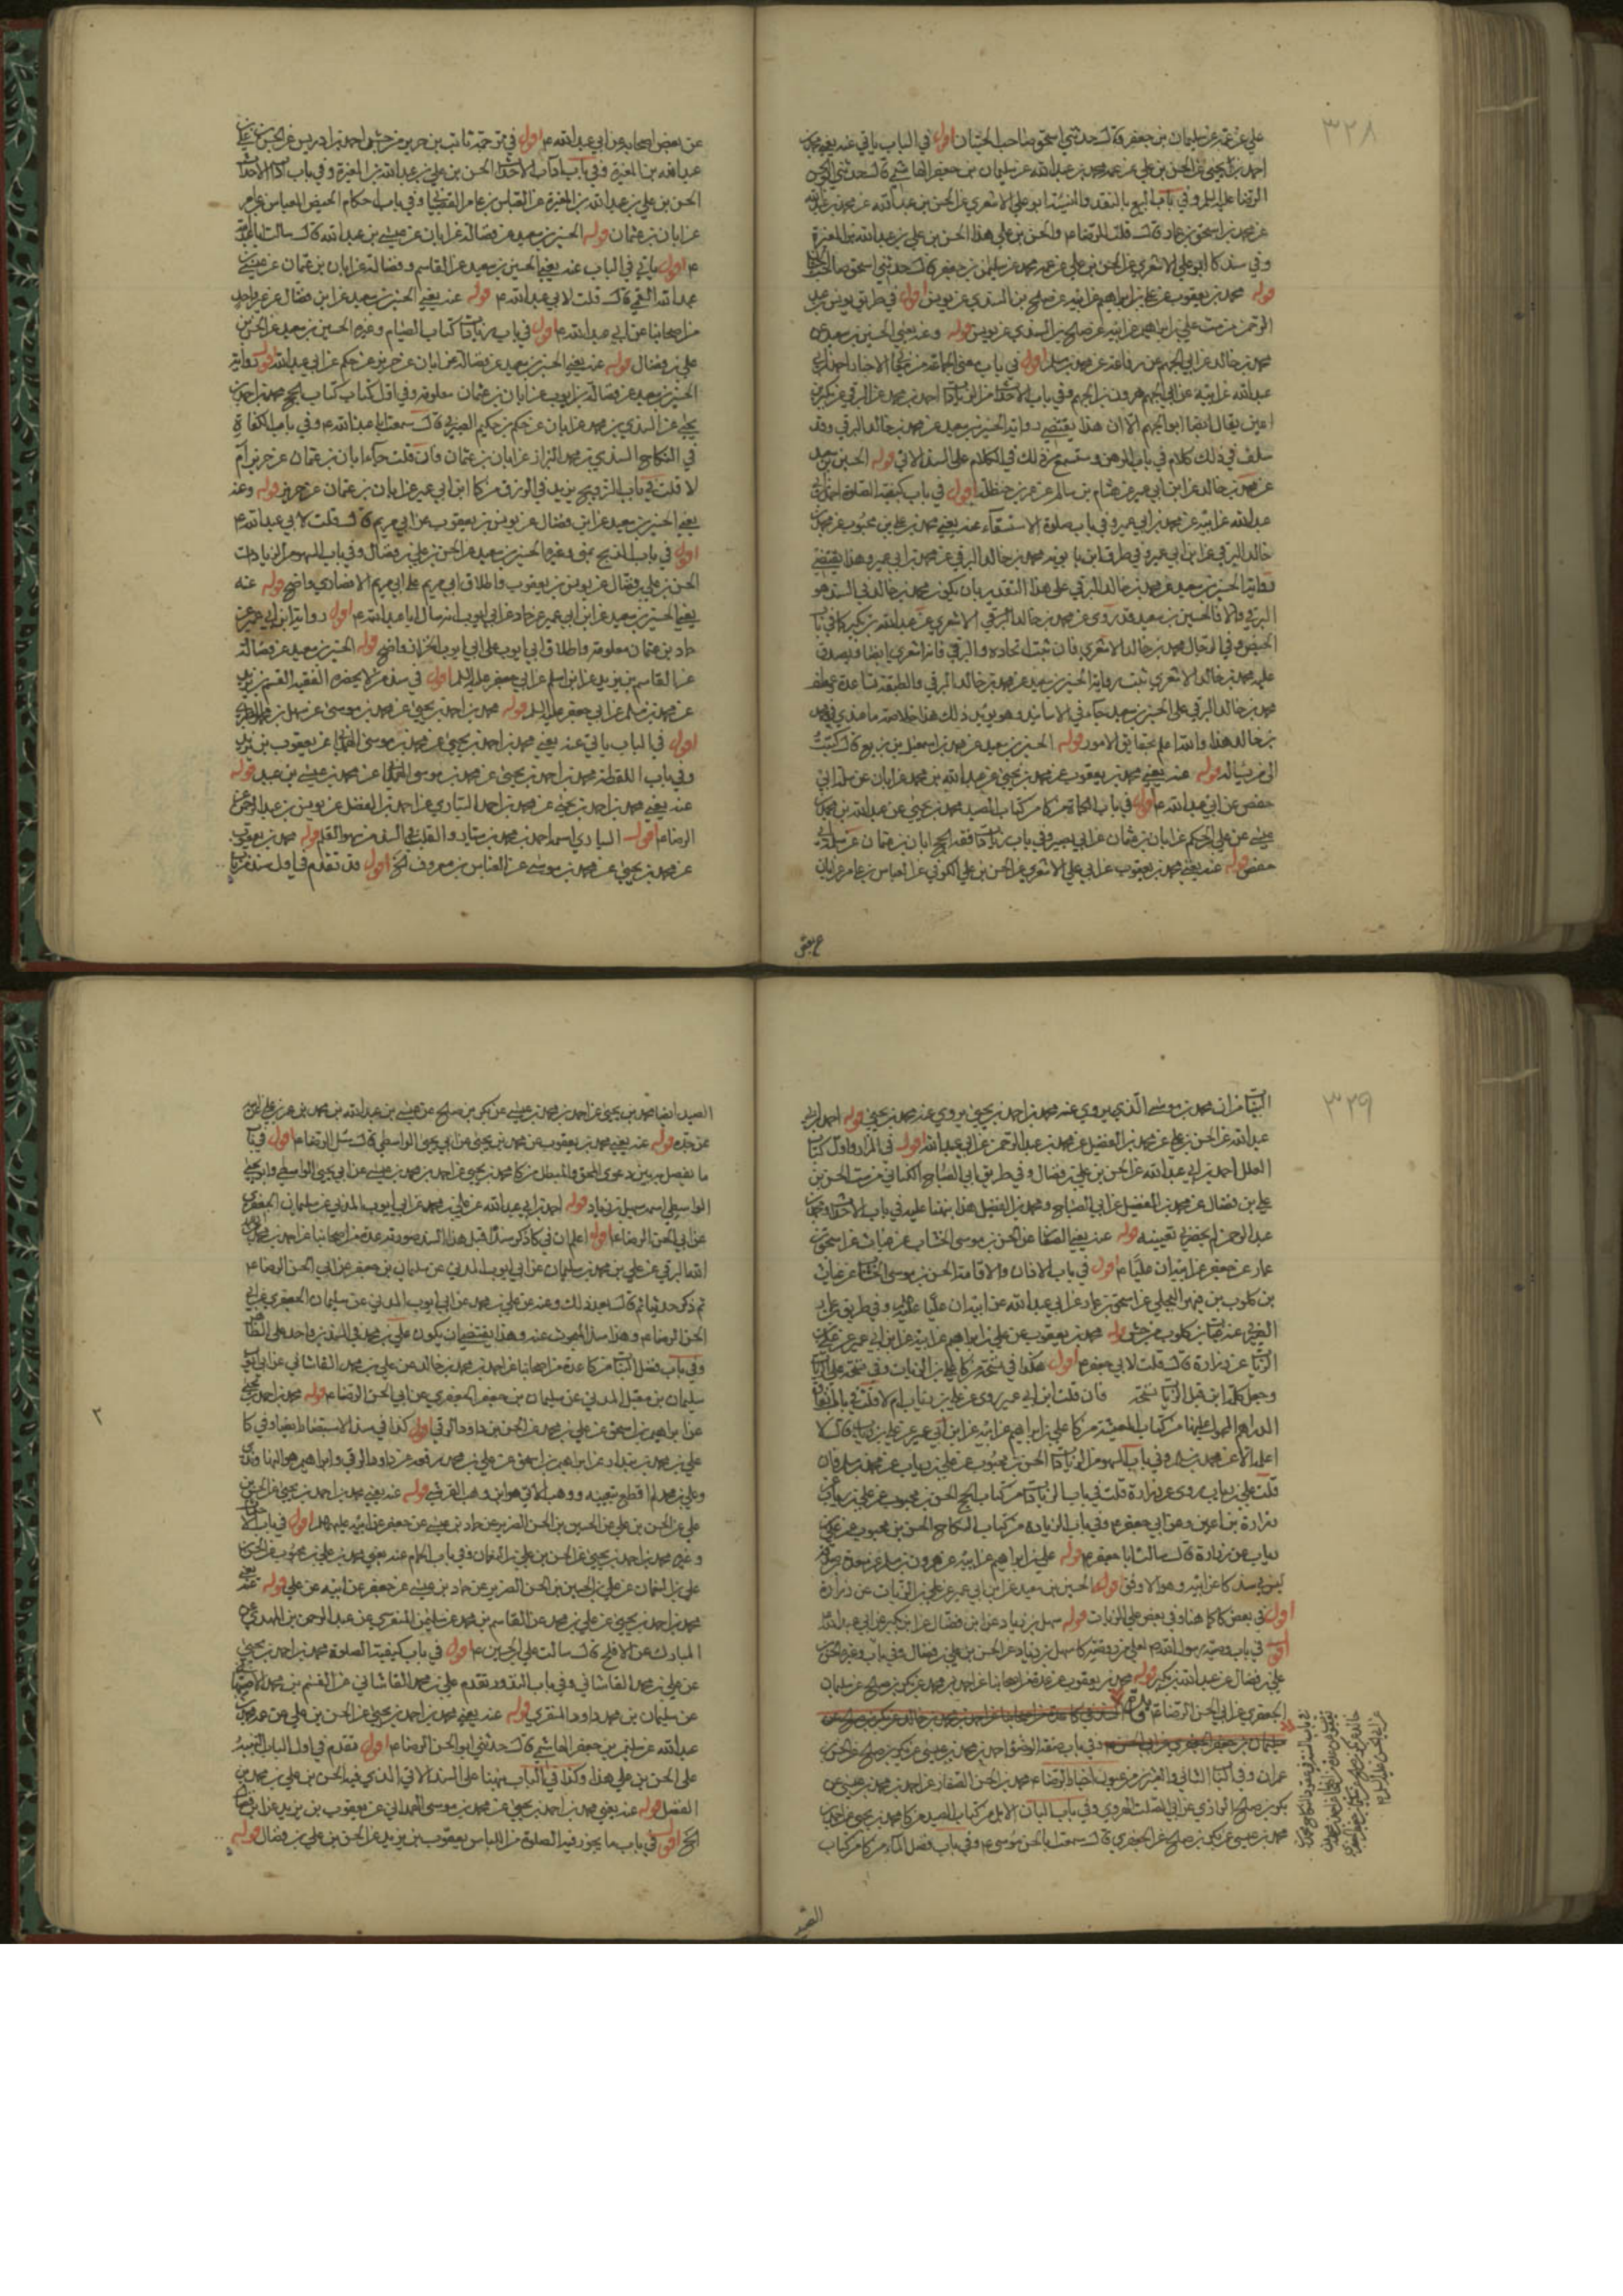 ٣٢٨
علي عن عمه عن سليمان بن جعفر قال حدثني اسحق صاحب الحيتان اقول في الباب ياتي عنه يعني محمد بن
احمد بن يحيى عن الحسن بن علي عن عمه محمد بن عبدالله عن سليمان بن جعفر الهاشمي قال حدثني ابو الحسن
الرضا عليه السلم وفي باب البيع بالنقد والنسيئة ابو علي الاشعري عن الحسن بن عبدالله عن محمد بن عبدالله
عن محمد بن اسحق بن عمار قال قلت للرضا ع والحسن بن علي هذا الحسن بن علي بن عبدالله بن المغيرة
وفي سند كا ابو علي الاشعري عن الحسن بن علي عن عمه محمد عن سليمن بن جعفر قال حدثني اسحق صاحب الحيتان
قوله محمد بن يعقوب عن علي بن ابراهيم عن ابيه عن صالح بن السندي عن يونس اقول في طريق يونس بن عبد
الرحمن من ست علي بن ابراهيم عن ابيه عن صالح بن السندي عن يونس قوله وعنه يعني الحسين بن سعيد عن
محمد بن خالد عن ابي الجهم عن رفاعة عن محمد بن مسلم اقول في باب معنى الحائقة من معاني الاخبار احمد بن ابي
عبدالله عن ابيه عن ابي الجهم هرون بن الجهم وفي باب الاحداث من الزيادات احمد بن محمد عن البرقي عن بكير بن
اعين يقال ايضا ابو الجهم الا ان هذا يقتضي رواية الحسين بن سعيد عن محمد بن خالد البرقي وقد
سلف في ذلك كلام في باب الرهن وستسمع من ذلك في الكلام على السند الاتي قوله الحسين بن سعيد
عن محمد بن خالد عن ابن ابي عمير عن هشام بن سالم عن عمر بن حنظلة اقول في باب كيفية الصلوة احمد بن ابي
عبدالله عن ابيه عن محمد بن ابي عمير وفي باب صلوة الاستسقاء عنه يعني محمد بن علي بن محبوب عن محمد بن
خالد البرقي عن ابن ابي عمير وفي طرق ابن بابويه محمد بن خالد البرقي عن محمد بن ابي عمير وهذا يقتضي
رواية الحسين بن سعيد عن محمد بن خالد البرقي على هذا التقدير بان يكون محمد بن خالد في السند هو
البرقي والا فالحسين بن سعيد قد روى عن محمد بن خالد البرقي الاشعري عن عبدالله بن بكير كما في باب
الحيض وفي الرجال محمد بن خالد الاشعري فان ثبت اتحاده والبرقي فانه اشعري ايضا ويصدق
عليه محمد بن خالد الاشعري ثبت رواية الحسين بن سعيد عن محمد بن خالد البرقي والطبقة تساعده وعطف
محمد بن خالد البرقي على الحسين بن سعيد جاء في الاسانيد وهو يؤيد ذلك هذا خلاصة ما عندي في محمد
بن خالد هذا والله اعلم بحقايق الامور قوله الحسين بن سعيد عن محمد بن اسمعيل بن بزيع قال كتبت
الى من يساله قوله عنه يعني محمد بن يعقوب عن محمد بن يحيى عن عبدالله بن محمد عن ابان عن سلمة ابي
حفص عن ابي عبدالله ع اقول في باب الحماة من كا من كتاب الصيد محمد بن يحيى عن عبدالله بن محمد بن
عيسى عن علي بن الحكم عن ابان بن عثمان عن ابي بصير وفي باب زيادات فقه الحج ابان بن عثمان عن سلمة ابي
حفص قوله عنه يعني محمد بن يعقوب عن ابي علي الاشعري عن الحسن بن علي الكوفي عن العباس بن عامر عن ابان
عن بعض
عن بعض اصحابه عن ابي عبدالله ع اقول في من ترجمة ثابت بن جرير من جش احمد بن ادريس عن الحسن بن علي بن
عبدالله بن المغيرة وفي باب اداب الاحداث الحسن بن علي بن عبدالله بن المغيرة وفي باب اداب الاحداث
الحسن بن علي بن عبدالله بن المغيرة عن العباس بن عامر القصباني وفي باب احكام الحيض العباس بن عامر
عن ابان بن عثمان قوله الحسين بن سعيد عن فضالة عن ابان عن عيسى بن عبدالله قال سالت ابا عبدالله
ع اقول ياتي في الباب عنه يعني الحسين بن سعيد عن القاسم وفضالة عن ابان بن عثمان عن عيسى بن
عبدالله القمي قال قلت لابي عبدالله ع قوله عنه يعني الحسين بن سعيد عن ابن فضال عن غير واحد
من اصحابنا عن ابي عبدالله ع اقول في باب زيادات كتاب الصيام وغيره الحسين بن سعيد عن الحسن بن
علي بن فضال قوله عنه يعني الحسين بن سعيد عن فضالة عن ابان عن حريز عن حكم عن ابي عبدالله اقول رواية
الحسين بن سعيد عن فضالة بن ايوب عن ابان بن عثمان معلومة وفي اول كتاب كتاب الحج محمد بن احمد بن
يحيى عن السندي بن محمد عن ابان عن حكم بن حكيم الصيرفي قال سمعت ابا عبدالله ع وفي باب الكفاءة
في النكاح السندي بن محمد البزاز عن ابان بن عثمان فان قلت جاء ابان بن عثمان عن حريز ام
لا قلت في باب التزويج يزيد في الرزق من كا ابن ابي عمير عن ابان بن عثمان عن حريز قوله وعنه
يعني الحسين بن سعيد عن ابن فضال عن يونس بن يعقوب عن ابي مريم قال قلت لابي عبدالله ع
اقول في باب الذبح بمنى وغيره الحسين بن سعيد عن الحسن بن علي بن فضال وفي باب المهور من الزيادات
الحسن بن علي بن فضال عن يونس بن يعقوب واطلاق ابي مريم على ابي مريم الانصاري واضح قوله عنه
يعني الحسين بن سعيد عن ابن ابي عمير عن حماد عن ابي ايوب انه سال ابا عبدالله ع اقول رواية ابن ابي عمير عن
حماد بن عثمان معلومة واطلاق ابي ايوب على ابي ايوب الخزاز واضح قوله الحسين بن سعيد عن فضالة
عن القاسم بن بريد عن ابن اسلم عن ابي جعفر عليه السلم اقول في سند من لا يحضره الفقيه القسم بن بريد
عن محمد بن مسلم عن ابي جعفر عليه السلم قوله محمد بن احمد بن يحيى عن محمد بن موسى عن سهل بن
اقول في الباب ياتي عنه يعني محمد بن احمد بن يحيى عن محمد بن موسى الهمداني عن يعقوب بن يزيد
وفي باب اللقطة محمد بن احمد بن يحيى عن محمد بن موسى الهمداني عن محمد بن عيسى بن عبيد قوله
عنه يعني محمد بن احمد بن يحيى عن محمد بن احمد السياري عن احمد بن الفضل عن يونس بن عبد الرحمن عن
الرضا ع اقول السياري اسمه احمد بن محمد بن سيار والقلب في السند من سهو القلم قوله محمد بن يعقوب
عن محمد بن يحيى عن محمد بن موسى عن العباس بن معروف الخ اقول قد تقدم في اول سند من
٣٢٩
ان محمد بن موسى الذي يروي عنه محمد بن احمد بن يحيى يروي عنه محمد بن يحيى قوله احمد بن ابي
عبدالله عن الحسن بن علي عن محمد بن الفضيل عن محمد بن عبد الرحمن عن ابي عبدالله اقول في المزار واول كتاب
العلل احمد بن ابي عبدالله عن الحسن بن علي بن فضال وفي طريق ابي الصباح الكناني من ست الحسن بن
علي بن فضال عن محمد بن الفضيل عن ابي الصباح ومحمد بن الفضيل هذا نبهنا عليه في باب الاحداث ومحمد بن
عبد الرحمن لم يحضرني تعيينه قوله عنه يعني الصفار عن الحسن بن موسى الخشاب عن غياث عن اسحق بن
عمار عن جعفر عن ابيه ان عليا ع اقول في باب الاذان والاقامة الحسن بن موسى الخشاب عن غياث
بن كلوب بن فيهس البجلي عن اسحق بن عمار عن ابي عبدالله عن ابيه ان عليا عليهم وفي طريق
من جش قوله محمد بن يعقوب عن علي بن ابراهيم عن ابيه عن ابن ابي عمير عن علي بن
الزيات عن زرارة قال قلت لابي جعفر ع اقول هكذا في نسخة من كا علي بن الزيات وفي نسخة علي الزيات
وجعل كلمة ابن قبل الزيات نسخة فان قلت ابن ابي عمير روى عن علي بن رياب ام لا قلت في باب
الدراهم من كتاب المعيشة من كا علي بن ابراهيم عن ابيه عن ابن ابي عمير عن علي بن رياب قال لا
اعلمه الا عن محمد بن مسلم وفي باب المهور من الزيادات الحسن بن محبوب عن علي بن رياب عن محمد بن مسلم فان
قلت علي بن رياب روى عن زرارة قلت في باب الزيادات من كتاب الحج الحسن بن محبوب عن علي بن رياب عن
زرارة بن اعين وعن ابي جعفر ع وفي باب الزيادة من كتاب النكاح الحسن بن محبوب عن علي بن
رياب عن زرارة قال سالت ابا جعفر ع قوله علي بن ابراهيم عن ابيه عن هرون بن مسلم عن مسعدة بن صدقة
ليس في سند كا عن ابيه وهو الاوفق اقول الحسين بن سعيد عن ابن ابي عمير عن علي بن الزيات عن زرارة
اقول في بعض كا كما هنا وفي بعض علي الزيات قوله سهل بن زياد عن ابن فضال عن ابن بكير عن ابي عبدالله
اقول في باب وصية رسول الله لعلي من روضة كا سهل بن زياد عن الحسن بن علي بن فضال وفي باب وغيره الحسن بن
علي بن فضال عن عبدالله بن بكير قوله محمد بن يعقوب عن عدة من اصحابنا عن احمد بن محمد عن بكر بن صالح عن سليمان
الجعفري عن ابي الحسن الرضا ع اقول السند في كا عدة من اصحابنا عن احمد بن محمد بن خالد عن بكر بن صالح عن
سليمان بن جعفر الجعفري عن ابي الحسن ع وفي باب صفة الوضوء احمد بن محمد بن عيسى عن بكر بن صالح عن الحسن بن
عمران وفي الباب الثاني والعشرين من عيون اخبار الرضا ع محمد بن الحسن الصفار عن احمد بن محمد بن عيسى عن
بكر بن صالح الرازي عن ابي الصلت الهروي وفي باب البان الابل من كتاب الصيد من كا محمد بن يحيى عن احمد بن
محمد بن عيسى عن بكر بن صالح عن الجعفري قال سمعت ابا الحسن موسى ع وفي باب فضل الماء من كا من كتاب
الصيد
الصيد ايضا محمد بن يحيى عن احمد بن محمد بن عيسى عن بكر بن صالح عن عيسى بن عبدالله بن محمد بن عمر بن علي عن ابيه
عن جده قوله عنه يعني محمد بن يعقوب عن محمد بن يحيى عن ابي يحيى الواسطي قال سئل الرضا ع اقول في باب
ما يفصل به بين دعوى المحق والمبطل من كا محمد بن يحيى عن احمد بن محمد بن عيسى عن ابي يحيى الواسطي وابو يحيى
الواسطي اسمه سهيل بن زياد قوله احمد بن ابي عبدالله عن علي بن محمد عن ابي ايوب المدني عن سليمان الجعفري
عن ابي الحسن الرضا ع اقول اعلم ان في كا ذكر سندا قبل هذا السند صورته عدة من اصحابنا عن احمد بن محمد بن
البرقي عن علي بن محمد بن سليمان عن ابي ايوب المدني عن سليمان بن جعفر عن ابي الحسن الرضا ع
ثم ذكر حديثا ثم قال بعد ذلك وعنه عن علي بن محمد عن ابي ايوب المديني عن سليمان الجعفري عن ابي
الحسن الرضا ع وهذا سند المبحوث عنه وهذا يقتضي ان يكون علي بن محمد في السندين واحد على الظاهر
وفي باب فضل من كا عدة من اصحابنا عن احمد بن محمد بن خالد عن علي بن محمد القاشاني عن ابي ايوب
سليمان بن مقبل المدني عن سليمان بن جعفر الجعفري عن ابي الحسن الرضا ع قوله محمد بن احمد بن يحيى
عن ابراهيم بن اسحق عن علي بن محمد عن الحسن بن داود الرقي اقول كذا في سند الاستبصار ايضا وفي كا
علي بن محمد بن بندار عن ابراهيم بن اسحق عن علي بن محمد رفعه عن داود الرقي وابراهيم هو النهاوندي
وعلي بن محمد لم اقطع بتعيينه ووهب الاتي هو ابن وهب القرشي قوله عنه يعني محمد بن احمد بن يحيى عن الحسن بن
علي عن الحسن بن علي عن الحسين بن الحسن الضرير عن حماد بن عيسى عن جعفر عن ابيه عليهما اقول في باب
وغيره محمد بن احمد بن يحيى عن الحسن بن علي بن النعمان وفي باب الحمام عنه يعني محمد بن علي بن محبوب عن الحسن بن
علي بن النعمان عن علي بن الحسين بن الحسن الضرير عن حماد بن عيسى عن جعفر عن ابيه عن علي قوله عنه يعني
محمد بن احمد بن يحيى عن علي بن محمد عن القاسم بن محمد عن سليمن المنقري عن عبد الرحمن بن المهدي عن
المبارك عن الافلح قال سالت علي بن الحسين ع اقول في باب كيفية الصلوة محمد بن احمد بن يحيى
عن علي بن محمد القاشاني وفي باب النذور تقدم علي بن محمد القاشاني عن القسم بن محمد الاصبهاني
عن سليمان بن محمد داود المنقري قوله عنه يعني محمد بن احمد بن يحيى عن الحسن بن علي عن عمه محمد بن
عبدالله عن سليمن بن جعفر الهاشمي قال حدثني ابو الحسن الرضا ع اقول تقدم في اول الباب التنبيه
على الحسن بن علي هذا وكذا في الباب نبهنا على السند الاتي الذي فيه الحسن بن علي بن محمد بن
الفضل قوله عنه يعني محمد بن احمد بن يحيى عن محمد بن موسى الهمداني عن يعقوب بن يزيد عن ابن فضال
الخ اقول في باب ما يجوز فيه الصلوة من اللباس يعقوب بن يزيد عن الحسن بن علي بن فضال قوله
٢